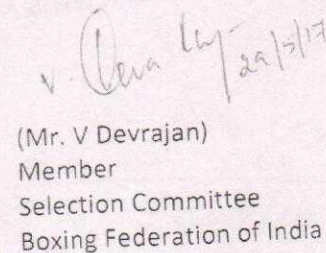 V. Deva Raj 29/5/17
(Mr. V Devrajan)
Member
Selection Committee
Boxing Federation of India